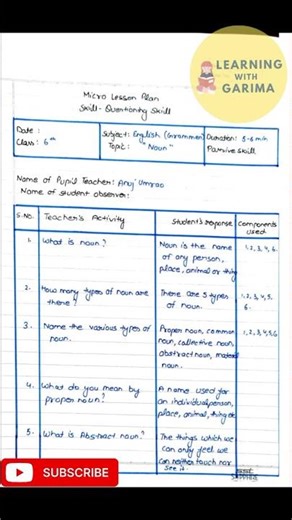 LEARNING
WITH
GARIMA
Micro Lesson Plan
Skill- Questioning Skill
Date :
Class: 6th
Subject: English (Grammer)
Topic: "Noun"
Duration: 5-6 min
Passive skill
Name of Pupil Teacher: Anuj Umrao
Name of student observer:
S.No. Teacher's Activity Student's response Components
used
1. What is noun? Noun is the name 1, 2, 3, 4, 6.
of any person,
place, animal or thing
2. How many types of noun are There are 5 types 1, 2, 3, 4, 5,
there? of noun. 6.
3. Name the various types of Proper noun, common 1, 2, 3, 4, 5, 6
noun. noun, collective noun,
abstract noun, material
noun.
4. What do you mean by A name used for
proper noun? an individual person,
place, animal, thing etc
5. What is Abstract noun? The things which we
can only feel we
can neither touch nor
see it.
SUBSCRIBE